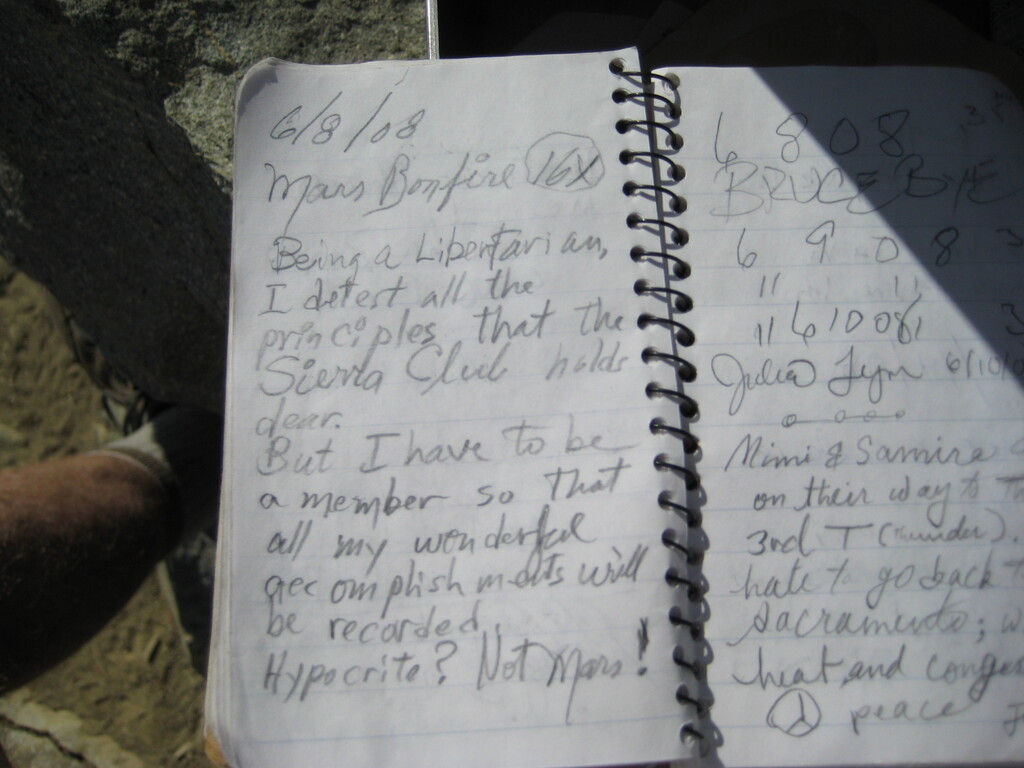 6/8/08
Mars Bonfire 16X
Being a Libertarian,
I detest all the
principles that the
Sierra Club holds
dear.
But I have to be
a member so that
all my wonderful
accomplishments will
be recorded.
Hypocrite? Not Mars!
6 8 08
BRUCE BYE
6 9 0 8
11 11
11 6 10 08
Julia 6/10/0
Mimi & Samira
on their way to
3rd T (
hate to go back
Sacramento;
heat and
peace